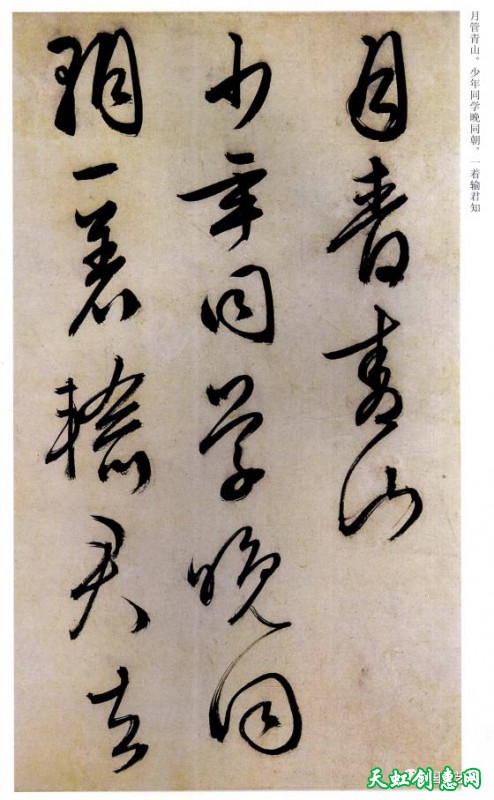 月管青山。少年同学晚同朝，一着输君知
月青山
少年同学晚同
朝一着輸君去
天虹创惠网